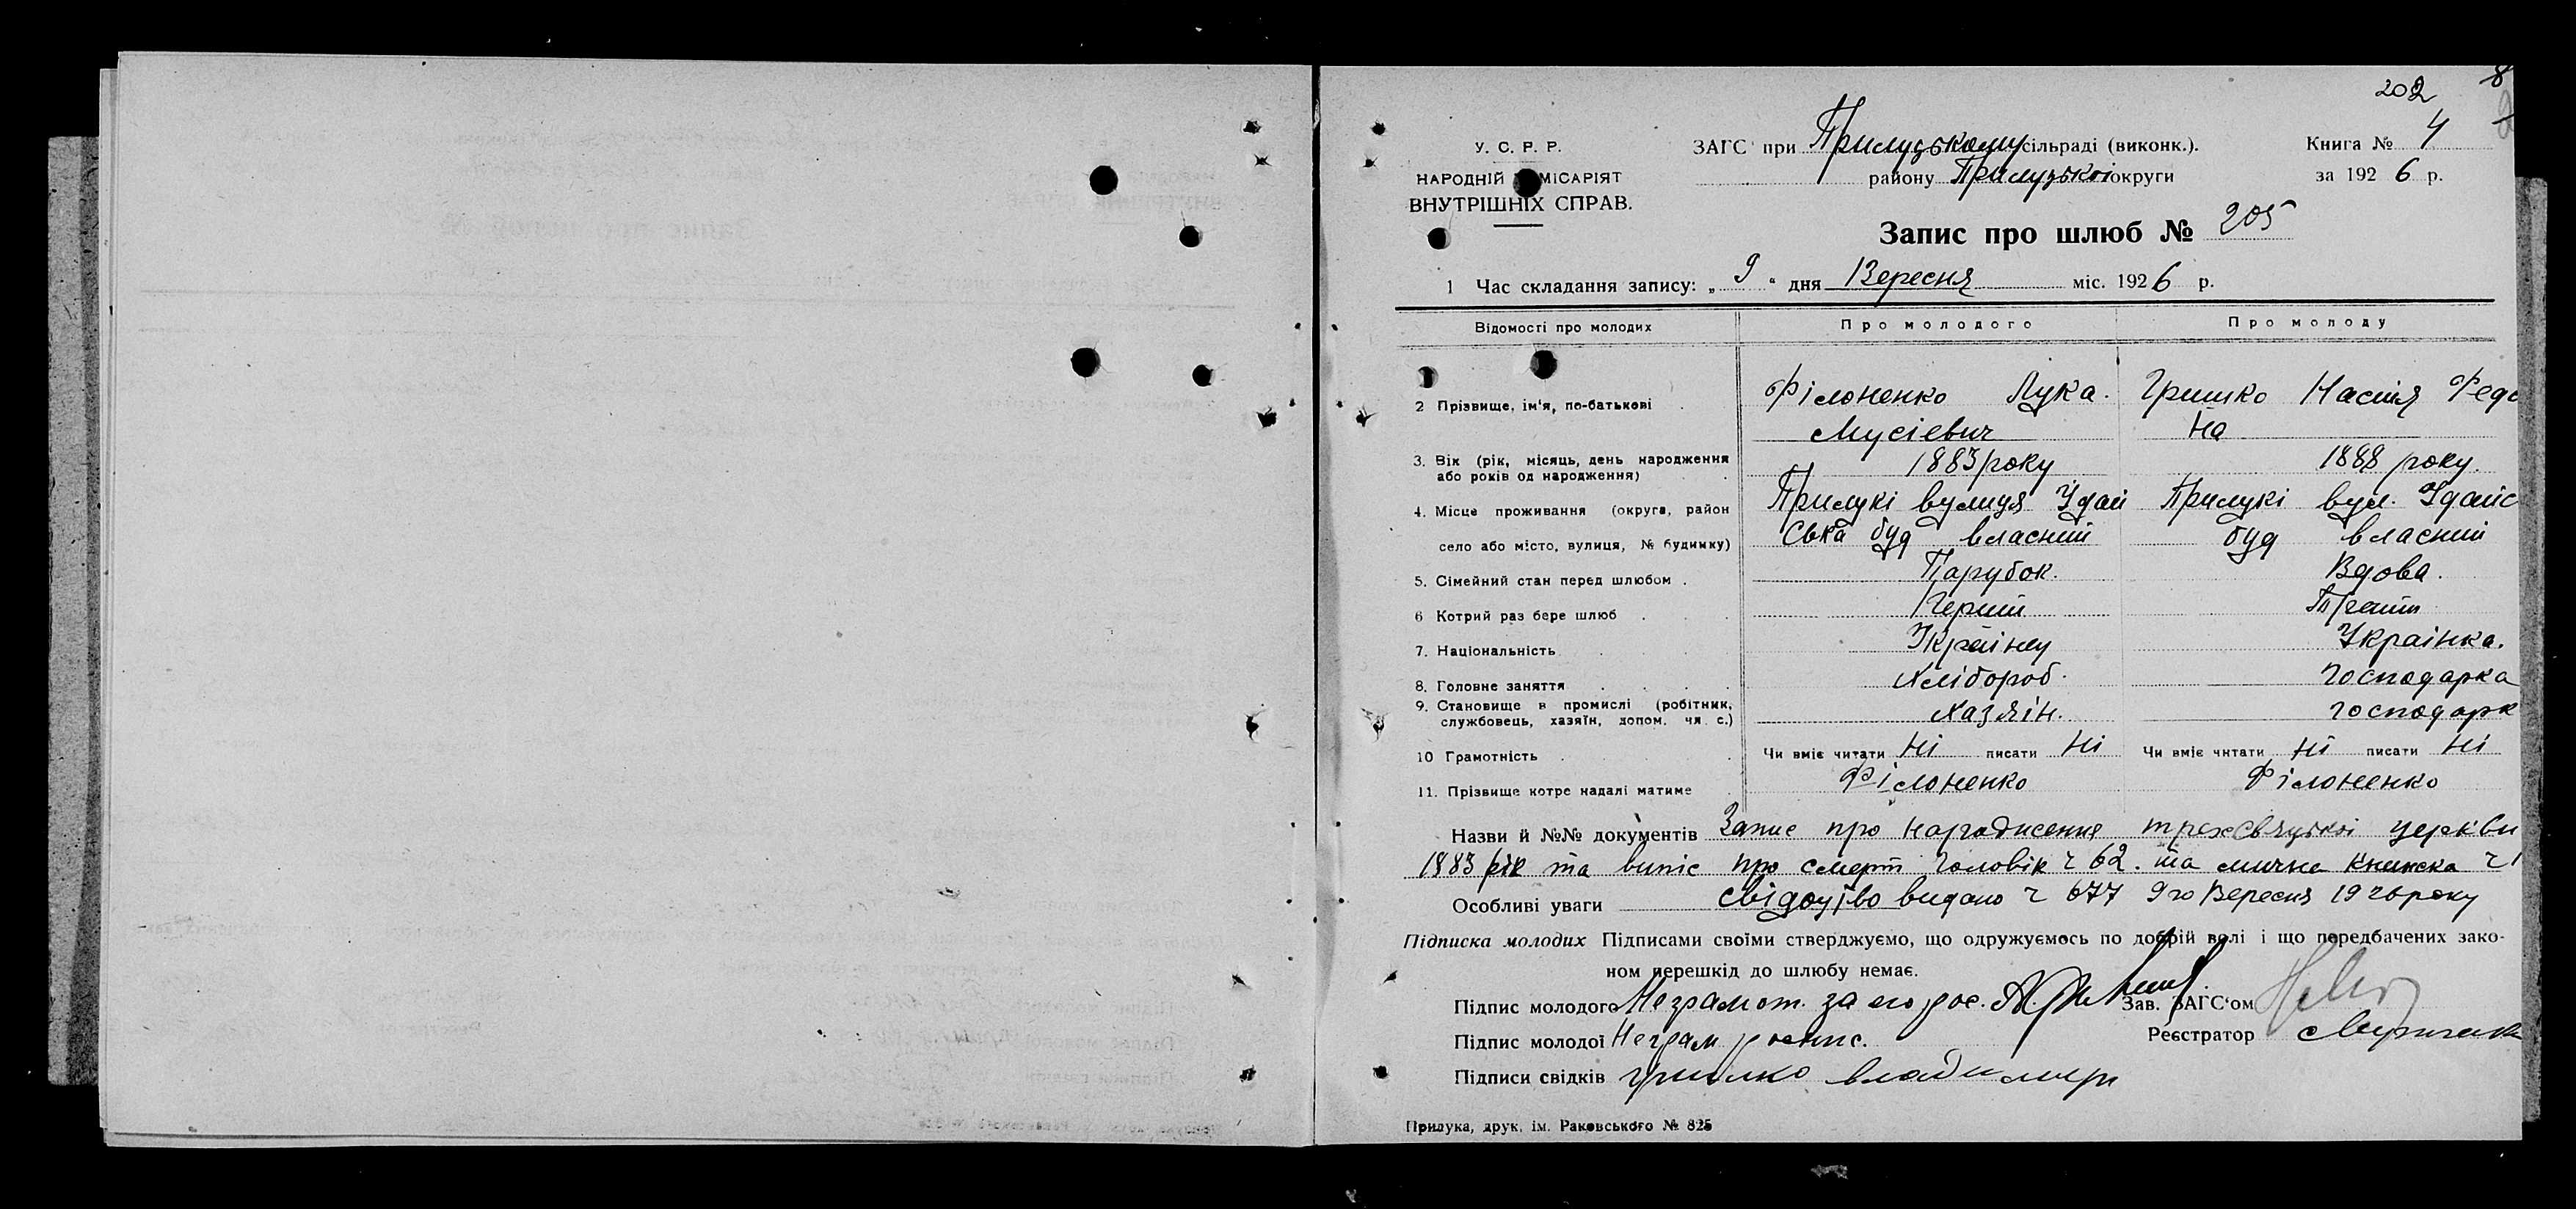 202 8
У. С. Р. Р.
НАРОДНІЙ МІСАРІЯТ
ВНУТРІШНІХ СПРАВ.
ЗАГС при Прилуцькому сільраді (виконк.).
району Прилуцькоі округи
Книга № 4
за 1926 р.
Запис про шлюб № 205
1 Час складання запису: „ 9 “ дня Вересня міс. 1926 р.
Відомості про молодих Про молодого Про молоду
2 Прізвище, ім'я, по-батькові Філоненко Лука. Гришко Настя Федо
Мусієвич на
3. Вік (рік, місяць, день народження 1883 року 1888 року.
або років од народження)
4. Місце проживання (округа, район Прилукі вулиця Удай Прилукі вул. Удайс
село або місто, вулиця, № будинку) ська буд власний буд власний
5. Сімейний стан перед шлюбом . Парубок. Вдова.
6 Котрий раз бере шлюб Перший Третій
7. Національність Украінец Украінка.
8. Головне заняття Хлібороб. Господарка
9. Становище в промислі (робітник, Хазяін. господарк
службовець, хазяїн, допом. чл. с.)
10 Грамотність Чи вміє читати Ні писати Ні Чи вміє читати Ні писати Ні
11. Прізвище котре надалі матиме Філоненко Філоненко
Назви й №№ документів Запис про народження трехсвяцькоі церкви
1883 рік та випіс про смерт чоловік ч 62. та лична книжка ч 1
Особливі уваги свідоцтво видано ч 677 9го Вересня 1926 року
Підписка молодих Підписами своїми стверджуємо, що одружуємось по добрій волі і що передбачених зако-
ном перешкід до шлюбу немає.
Підпис молодого Неграмот. за его рос. Зав. ЗАГС‘ом
Підпис молодої Неграм Реєстратор
Підписи свідків Гришко владимир
Прилука, друк. ім. Раковського № 825